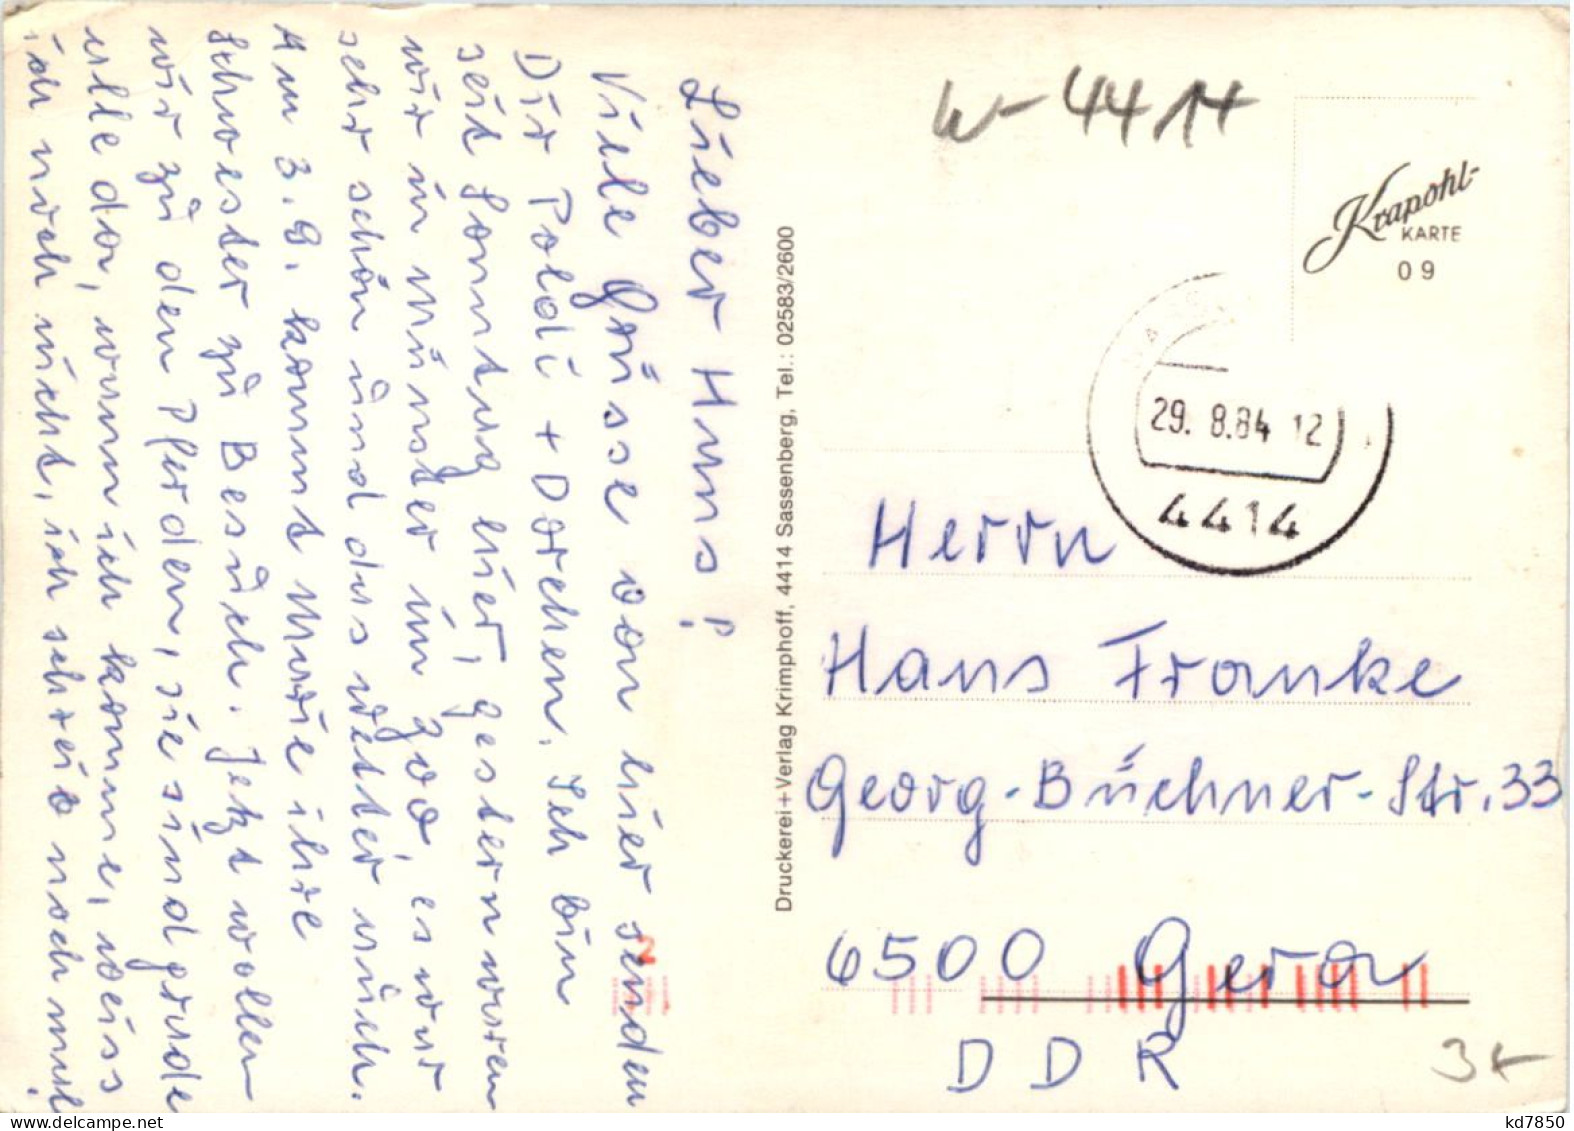 Lieber Hans!
Viele Grüsse von hier senden
Dir Poldi + Dorchen. Ich bin
seit Sonntag hier, gestern waren
wir in Münster im Zoo, es war
sehr schön und das Wetter auch.
Am 3.9. kommt Marie ihre
Schwester zu Besuch. Jetzt wollen
wir zu den Pferden, sie sind grade
alle da, wann ich komme, weiss
ich noch nicht, ich schreib noch mal.
Druckerei+Verlag Krimphoff, 4414 Sassenberg, Tel.: 02583/2600
W-4414
Krapohl-
KARTE
09
29. 8.84 12
4414
Herrn
Hans Franke
Georg-Büchner-Str. 33
6500 Gera
DDR
kd7850